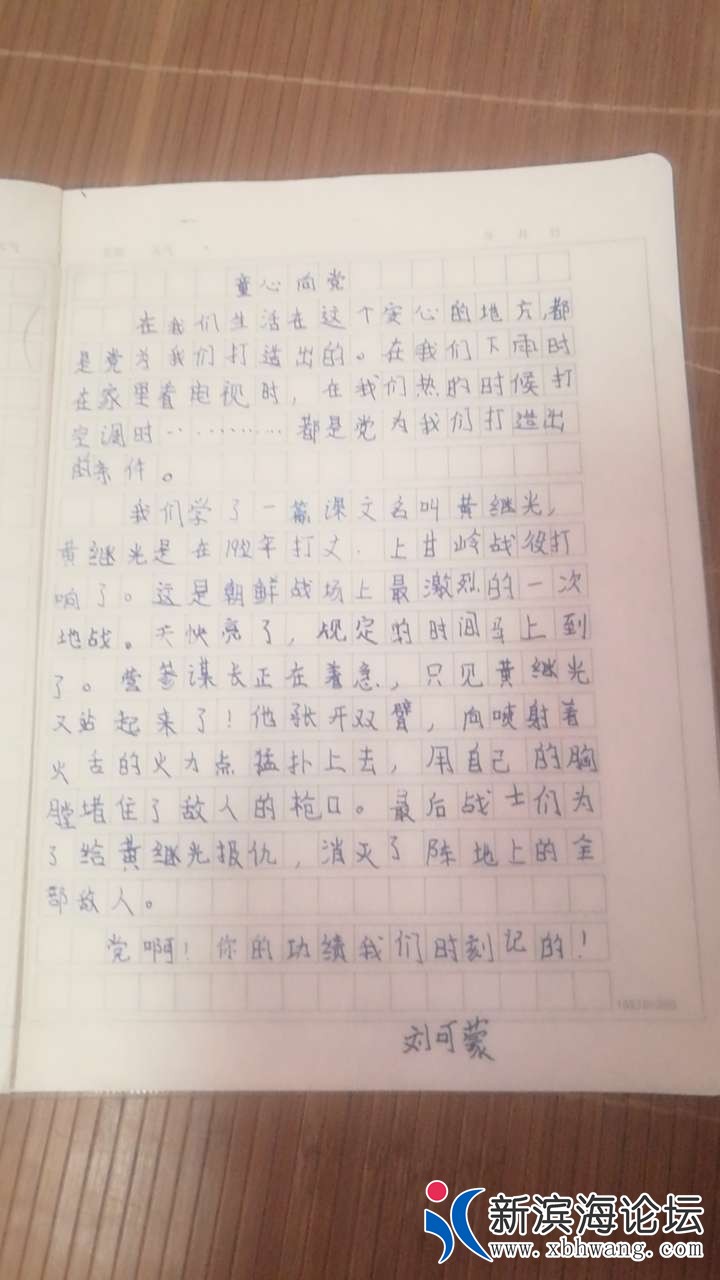 童心向党
在我们生活在这个安心的地方,都
是党为我们打造出的。在我们下雨时
在家里看电视时，在我们热的时候打
空调时…………都是党为我们打造出
的条件。
我们学了一篇课文名叫黄继光，
黄继光是在1952年打文.上甘岭战役打
响了。这是朝鲜战场上最激烈的一次
地战。天快亮了，规定的时间马上到
了。营参谋长正在着急，只见黄继光
又站起来了！他张开双臂，向喷射着
火舌的火力点猛扑上去，用自己的胸
膛堵住了敌人的枪口。最后战士们为
了给黄继光报仇，消灭了阵地上的全
部敌人。
党啊！你的功绩我们时刻记的！
刘可蒙
新滨海论坛
www.xbhwang.com